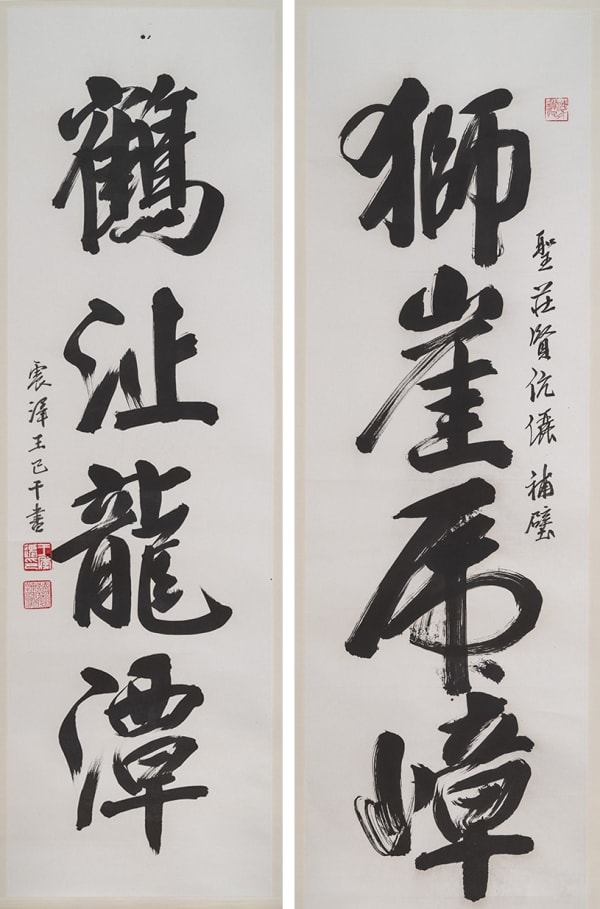 獅崖虎嶂
聖莊賢伉儷 補壁
鶴沚龍潭
震澤王己千書